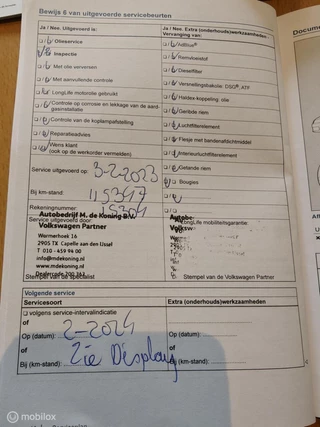 Bewijs 6 van uitgevoerde servicebeurten
Ja / Nee Uitgevoerd is:
Olieservice
Inspectie
Met olie verversen
Met aanvullende controle
LongLife motorolie gebruikt
Controle op corrosie en lekkage van de aardgasinstallatie
Controle van de koplampafstelling
Reparatieadvies
Wens klant
(ook op de werkorder vermelden)
Service uitgevoerd op: 3-2-2023
Bij km-stand: 115347
Rekeningnummer:
Autobedrijf M. de Koning B.V.
Volkswagen Partner
Wormerhoek 16
2905 TX Capelle aan den IJssel
T 010 - 459 94 00
info@mdekoning.nl
www.mdekoning.nl
Dealercode
Stempel van de specialist
Ja / Nee Extra (onderhouds)werkzaamheden
Vervanging van:
AdBlue®
Remvloeistof
Dieselfilter
Versnellingsbakolie: DSG®, ATF
Haldex-koppeling: olie
Geribde riem
Luchtfilterelement
Flesje met bandenafdichtmiddel
Interieurluchtfilterelement
Getande riem
Bougies
LongLife mobiliteitsgarantie:
Autobe
Volksw
Stempel van de Volkswagen Partner
Volgende service
Servicesoort
volgens service-intervalindicatie
of
Op (datum): 2-2024
of
Bij (km-stand): Zie Display
Extra (onderhouds)werkzaamheden
Op (datum):
of
Bij (km-stand):
Docume
mobilox